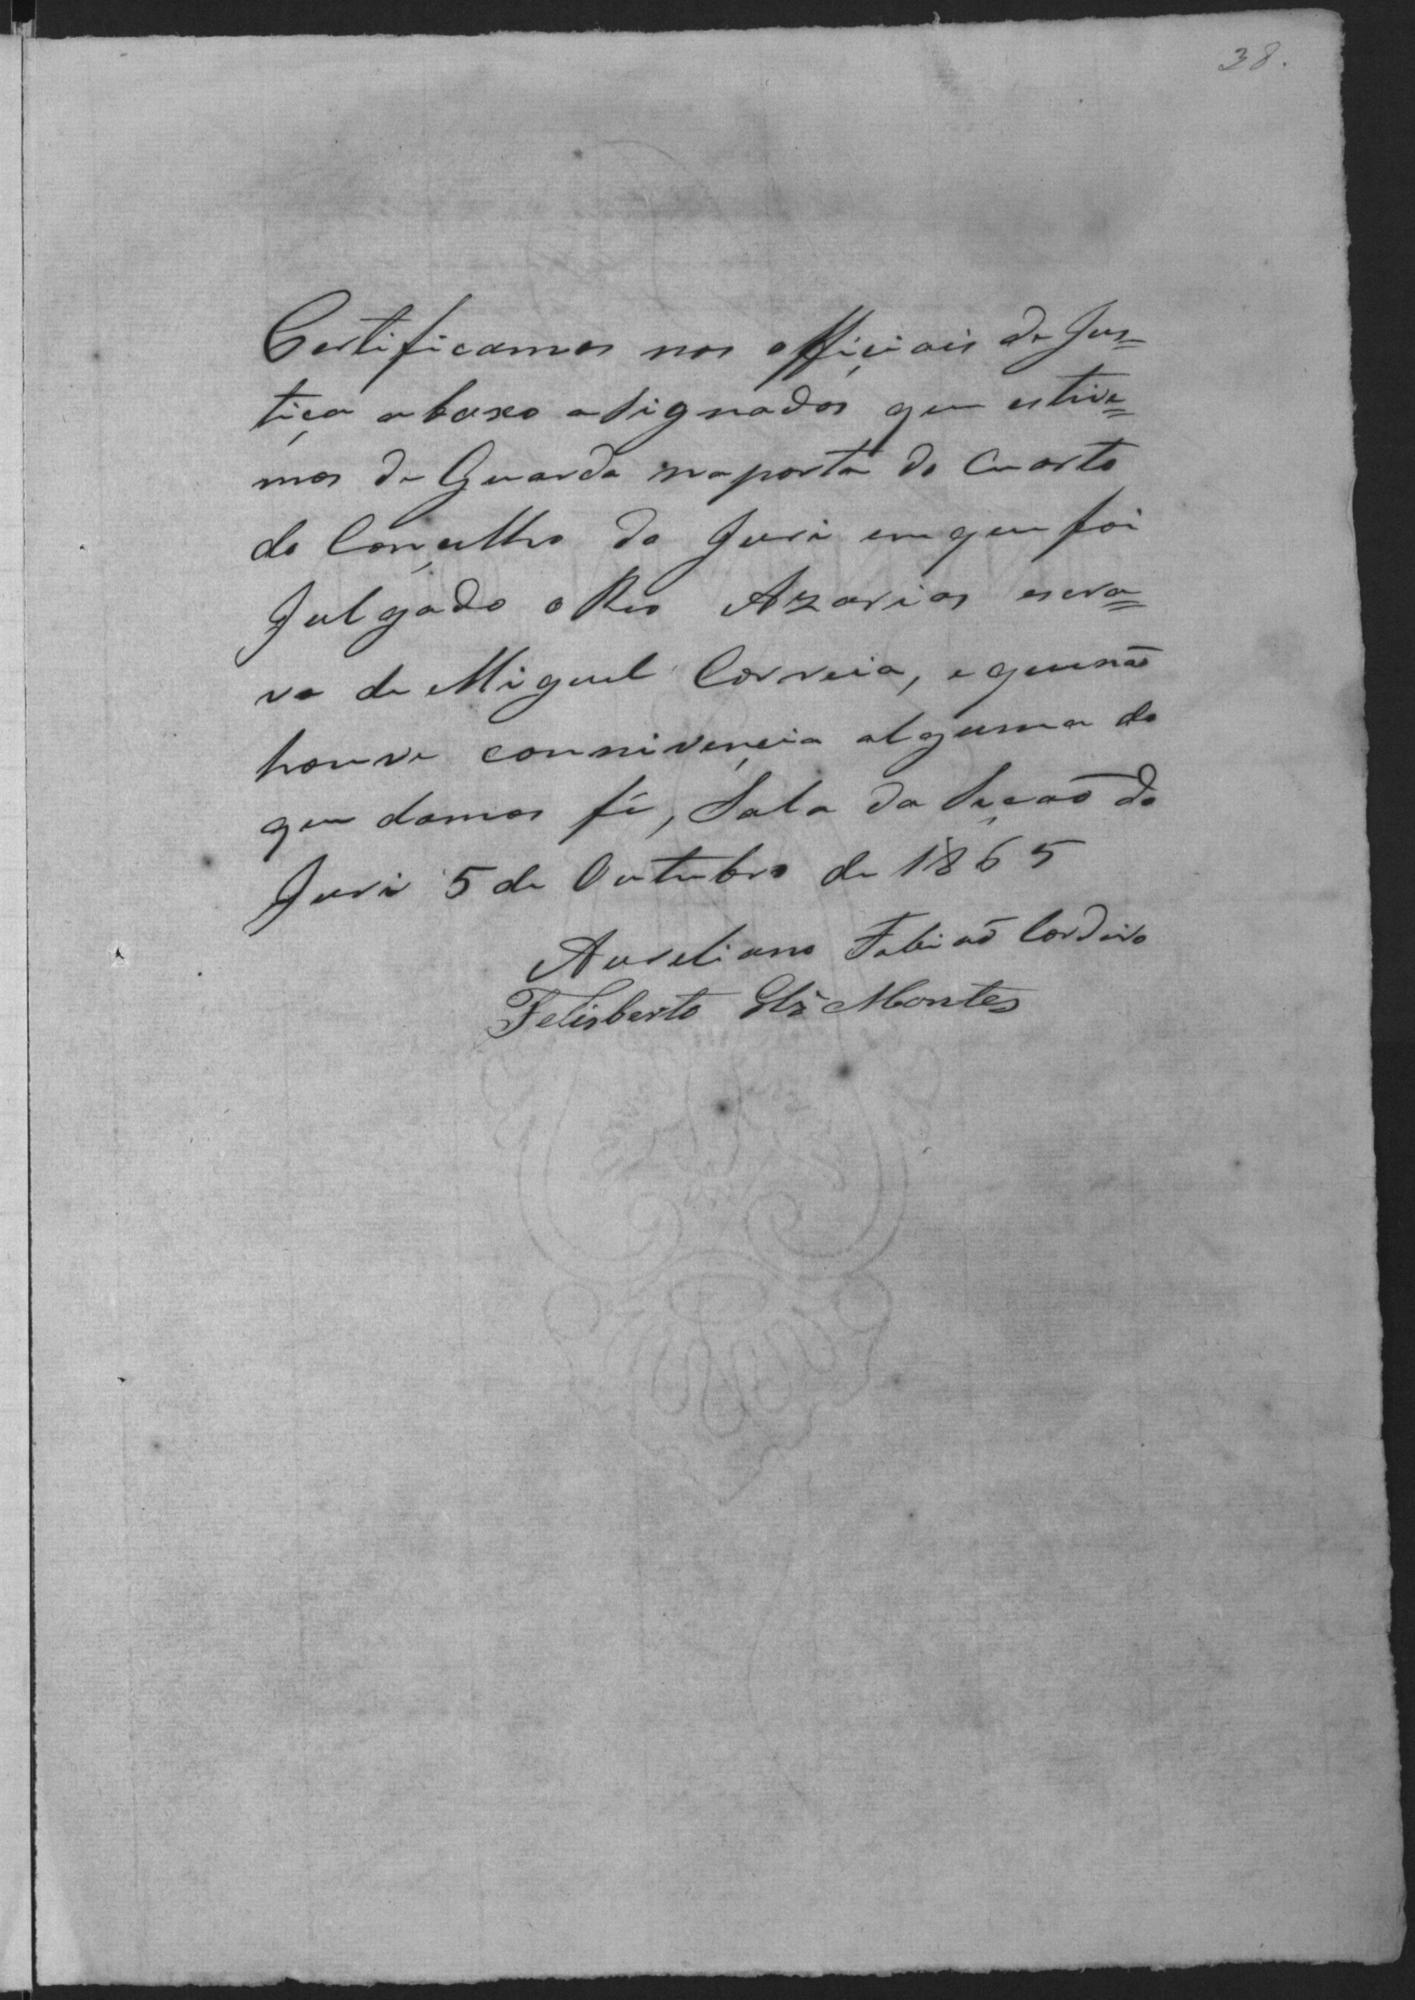 38.
Certificamos nos offiçiais de Jus=
tiça abaxo asignados que estive=
mos de Guarda na porta do Cuarto
do Conçelho do Juri em que foi
Julgado o Reo Azarias escra=
vo de Miguel Correia, e que não
houve conniveņcia alguma do
que damos fé, Sala da Seçaõ do
Juri 5 de Outubro de 1865
Aureliano Fabiaõ Cordeiro
Felisberto Montes